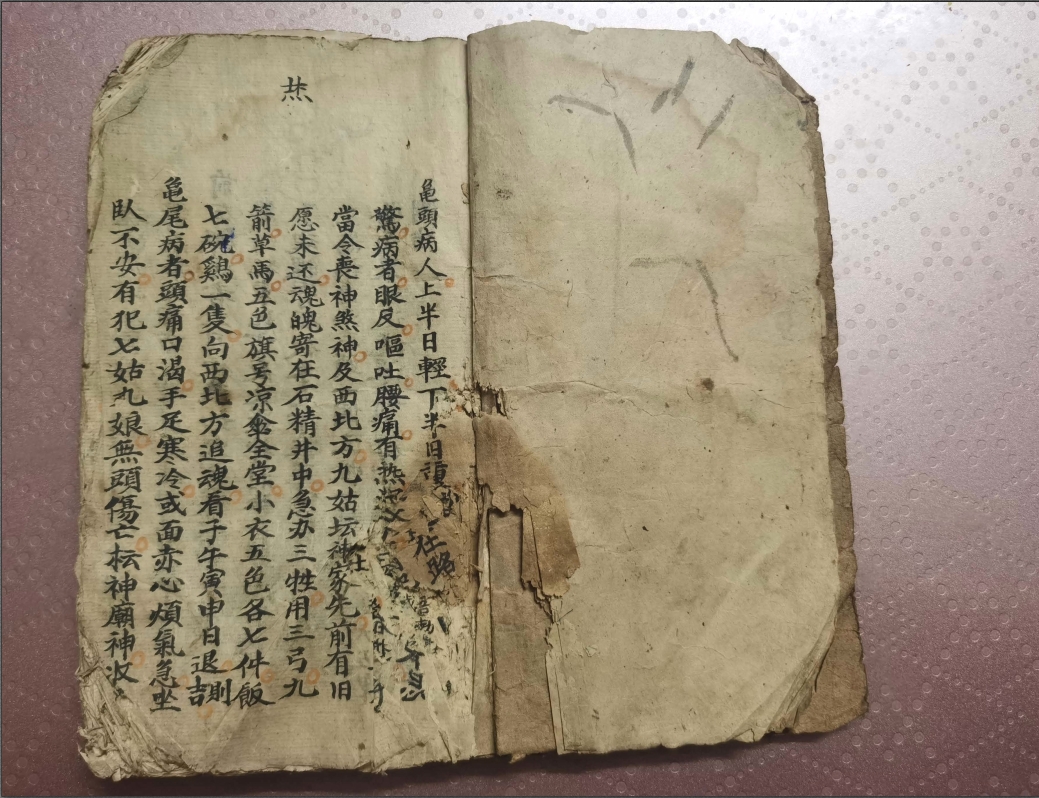 龟頭病人上半日輕下半日重
驚病者眼反嘔吐腰痛有热
當令喪神煞神及西北方九姑坛神家先前有旧
愿未还魂魄寄在石精井中急办三牲用三弓九
箭草馬五色旗号凉傘全堂小衣五色各七件飯
七碗鷄一隻向西北方追魂看子午寅申日退則吉
龟尾病者頭痛口渴手足寒冷或面赤心煩氣急坐
臥不安有犯七姑九娘無頭傷亡枟神廟神收